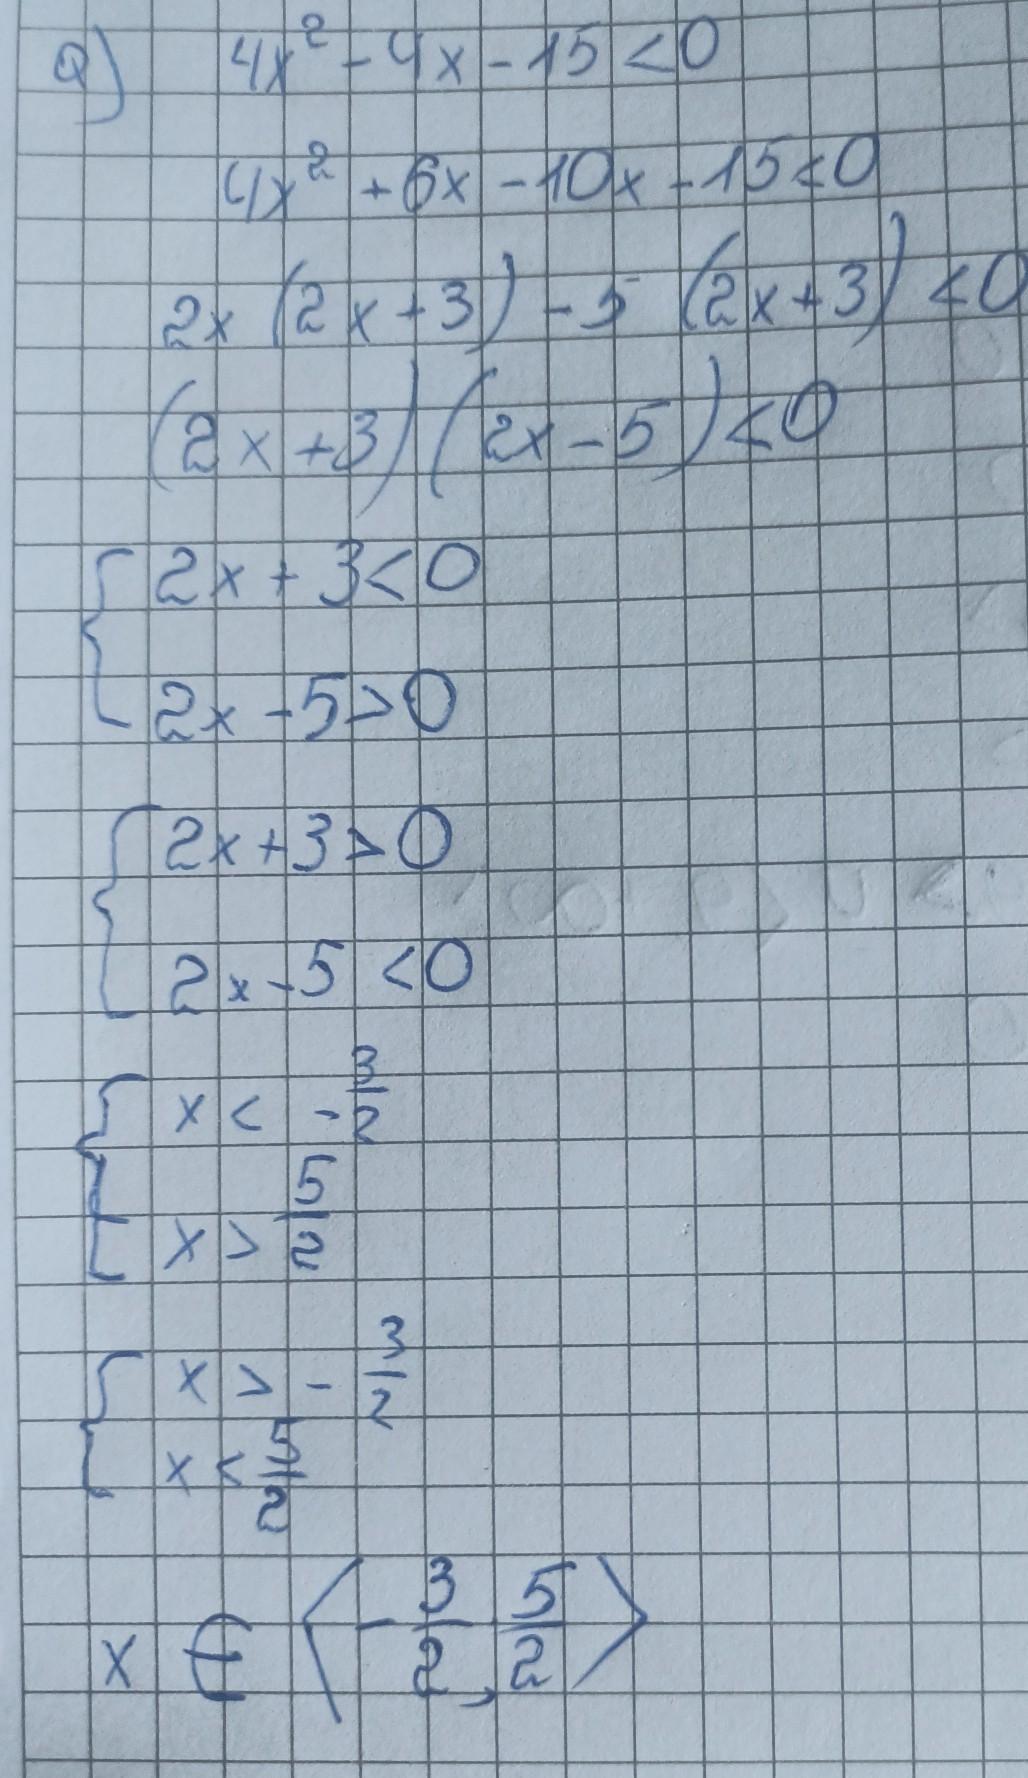 a) 4x² - 4x - 15 < 0
4x² + 6x - 10x - 15 < 0
2x (2x + 3) - 5 (2x + 3) < 0
(2x + 3) (2x - 5) < 0
{ 2x + 3 < 0
2x - 5 > 0
{ 2x + 3 > 0
2x - 5 < 0
{ x < - 3/2
x > 5/2
{ x > - 3/2
x < 5/2
x ∈ ⟨- 3/2, 5/2⟩